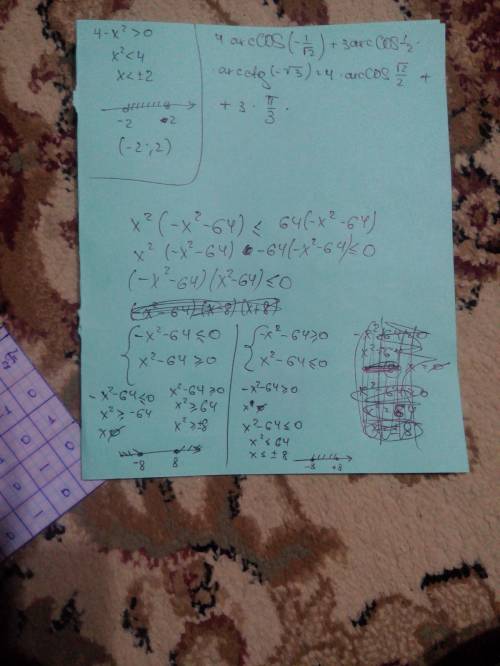 4 - x² > 0
x² < 4
x < ±2
-2 2
(-2; 2)
4 arccos(-1/√2) + 3 arccos 1/2 ·
· arcctg(-√3) = 4 · arccos √2/2 +
+ 3 · π/3 ·
x²(-x²-64) ≤ 64(-x²-64)
x²(-x²-64) - 64(-x²-64) ≤ 0
(-x²-64)(x²-64) ≤ 0
{ -x²-64 ≤ 0
x²-64 ≥ 0
-x²-64 ≤ 0
x² ≥ -64
x²-64 ≥ 0
x² ≥ 64
x² ≥ ±8
-8 8
{ -x²-64 ≥ 0
x²-64 ≤ 0
-x²-64 ≥ 0
x²-64 ≤ 0
x² ≤ 64
x ≤ ±8
-8 +8